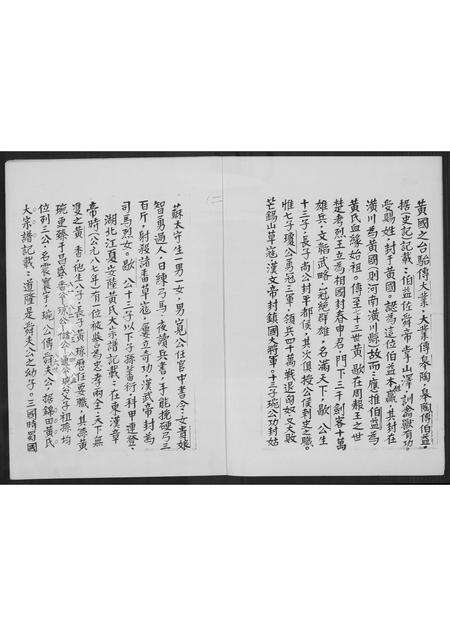 黃國之台駘傳大業、大業傳皋陶、皋陶傳伯益。
據史記記載：伯益佐舜帝掌山澤，訓禽獸有功。
受賜姓，封于黃國。認為這位伯益本嬴，其封在
潢川為黃國（則河南潢川縣）故而：應推伯益為
黃氏血緣始祖。傳至七十三世黃歇在周赧王之世
楚考烈王立為相國封春申君，門下三千劍客十萬
雄兵，文韜武略，冠絕群雄，名滿天下。歇公生
十三子，長子尚公封平都侯，其次俱授公侯刺史之職。
惟七子瓊公勇冠三軍，領兵四十萬戰退匈奴又大敗
芒碭山草寇漢文帝封鎮國大將軍。十三子琬公功封姑
（二）
蘇太守生一男一女，男嵬公任官中書令，女貴娘
智勇過人，日練弓馬，夜讀兵書，手能挽硬弓三
百斤，射殺諸番草寇，屢立奇功，漢武帝封為
司馬烈女。歇公十三子以下子孫蕃衍，科甲連登。
湖北江夏、安陸黃氏大宗譜記載：在東漢章
帝時（公元八七年）有一位被譽為忠孝兩全，天下無
雙之黃香，他生八子，長子黃瓊歷任要職，其孫黃
琬更臻于昌盛，香公、瓊公、琬公父子祖孫均
位列三公，名震寰宇，琬公傳舜夫公。據錦田黃氏
大宗譜記載：道隆是舜夫公之幼子。三國時蜀國